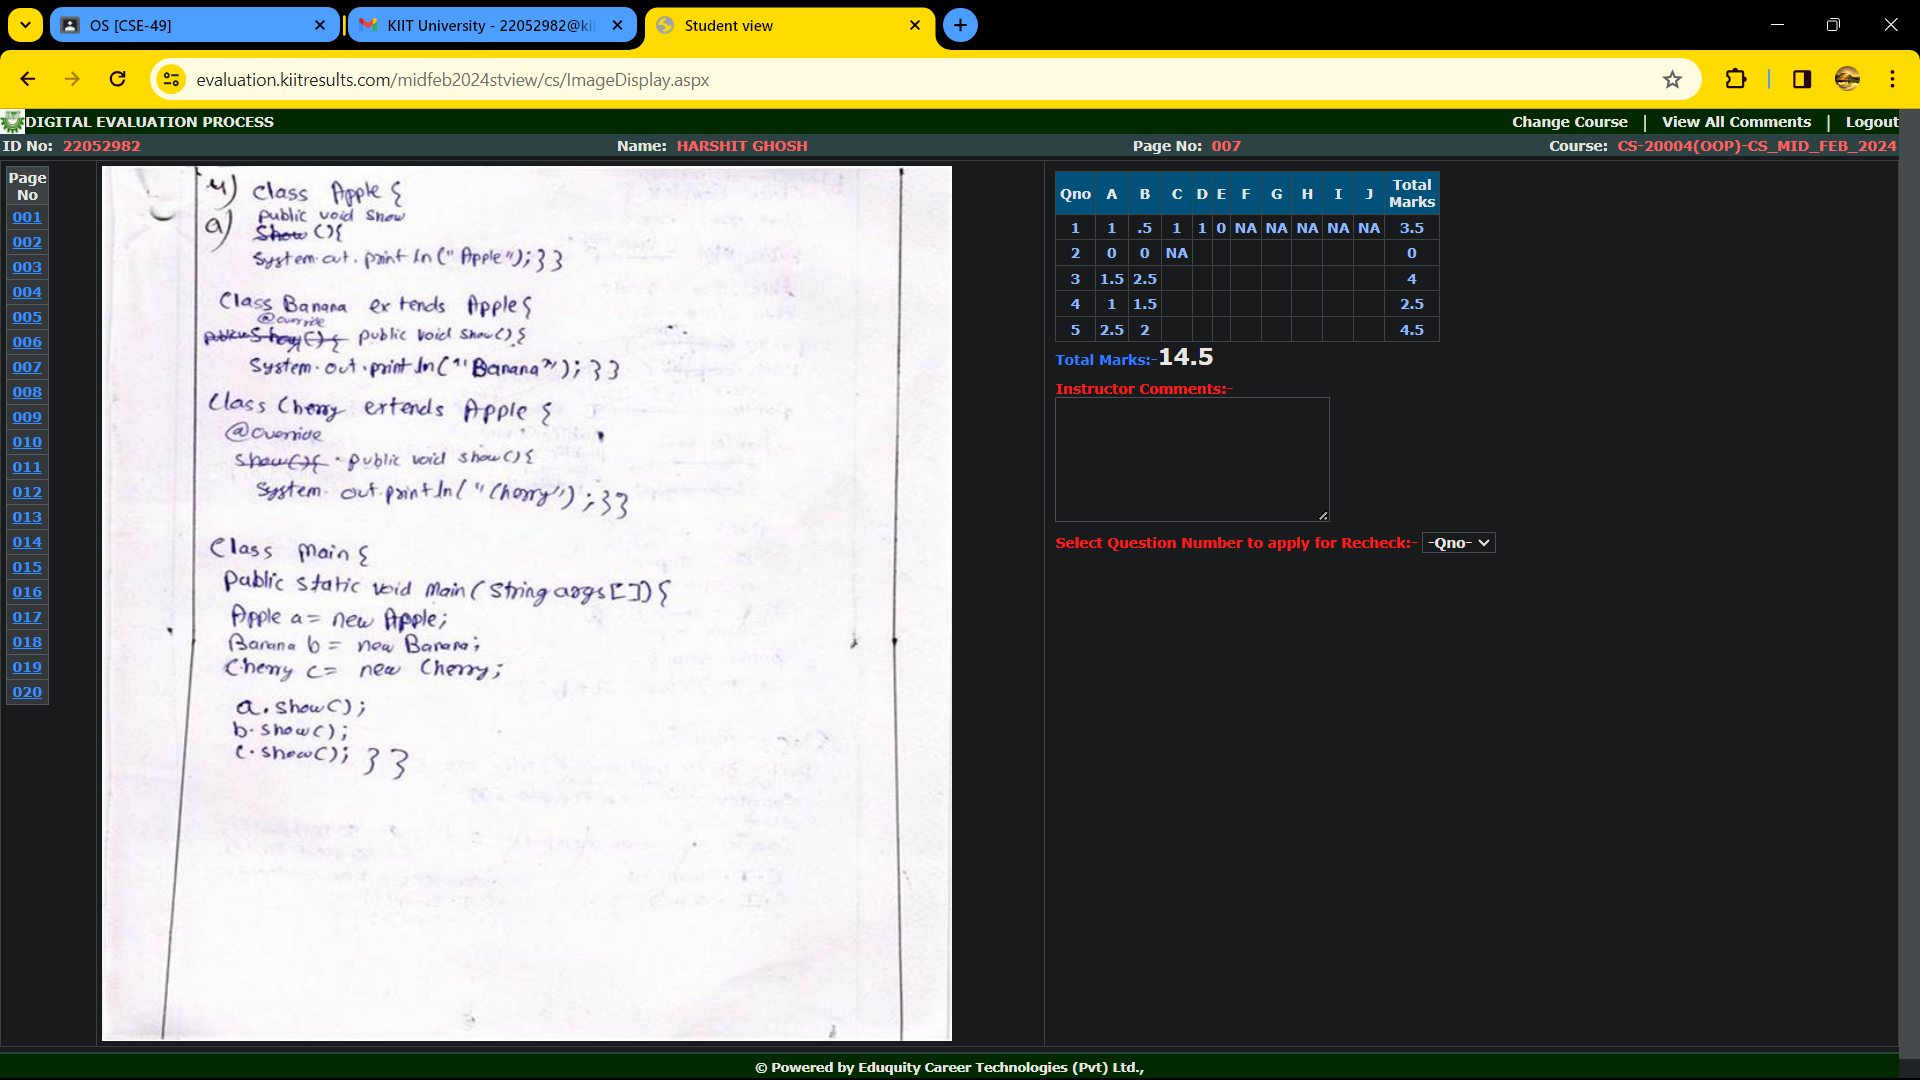 OS [CSE-49]
KIIT University - 22052982@kii
Student view
evaluation.kiitresults.com/midfeb2024stview/cs/ImageDisplay.aspx
DIGITAL EVALUATION PROCESS
Change Course | View All Comments | Logout
ID No: 22052982 Name: HARSHIT GHOSH Page No: 007 Course: CS-20004(OOP)-CS_MID_FEB_2024
Page No
001
002
003
004
005
006
007
008
009
010
011
012
013
014
015
016
017
018
019
020
4) Class Apple {
a) public void show
Show () {
System.out.println("Apple"); } }
Class Banana extends Apple {
@override
public void show() {
System.out.println("Banana"); } }
Class Cherry extends Apple {
@override
show() { public void show() {
System.out.println("Cherry"); } }
Class Main {
Public static void Main(String args[]) {
Apple a = new Apple;
Banana b = new Banana;
Cherry c = new Cherry;
a.show();
b.show();
c.show(); } }
Qno A B C D E F G H I J Total Marks
1 1 .5 1 1 0 NA NA NA NA NA 3.5
2 0 0 NA 0
3 1.5 2.5 4
4 1 1.5 2.5
5 2.5 2 4.5
Total Marks:-14.5
Instructor Comments:-
Select Question Number to apply for Recheck:- -Qno-
© Powered by Eduquity Career Technologies (Pvt) Ltd.,